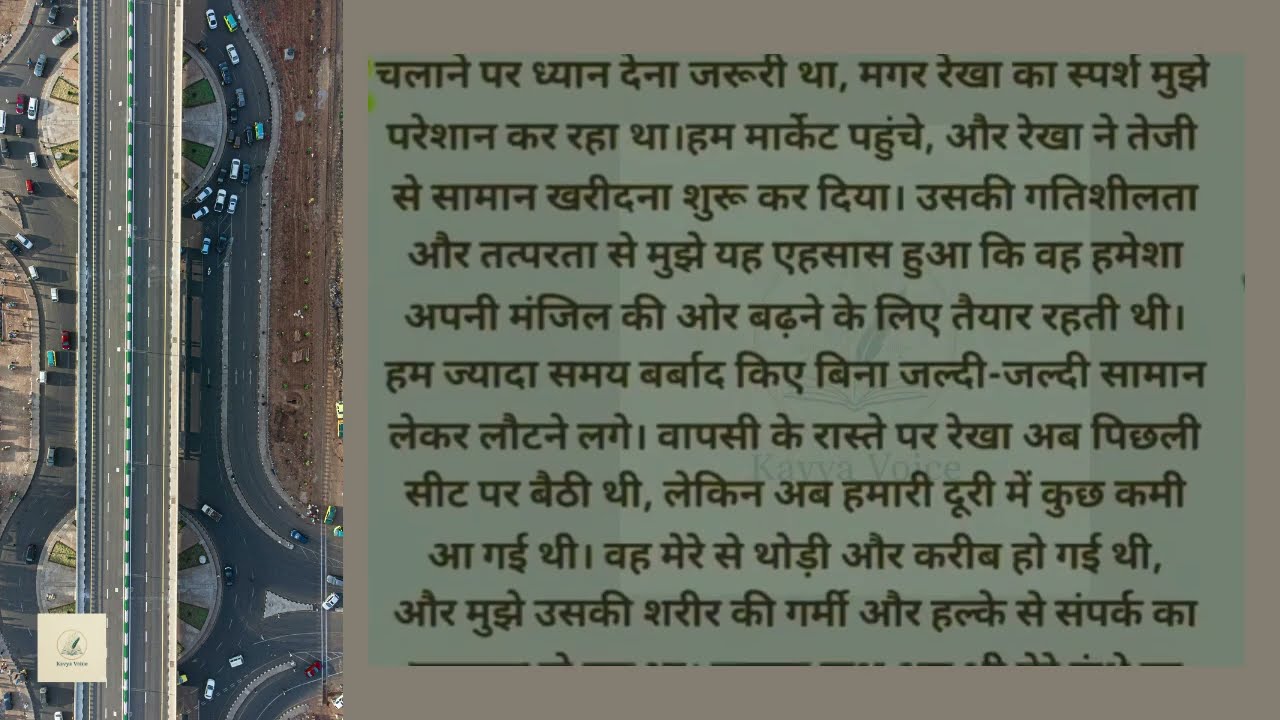 चलाने पर ध्यान देना जरूरी था, मगर रेखा का स्पर्श मुझे
परेशान कर रहा था।हम मार्केट पहुंचे, और रेखा ने तेजी
से सामान खरीदना शुरू कर दिया। उसकी गतिशीलता
और तत्परता से मुझे यह एहसास हुआ कि वह हमेशा
अपनी मंजिल की ओर बढ़ने के लिए तैयार रहती थी।
हम ज्यादा समय बर्बाद किए बिना जल्दी-जल्दी सामान
लेकर लौटने लगे। वापसी के रास्ते पर रेखा अब पिछली
Kavya Voice
सीट पर बैठी थी, लेकिन अब हमारी दूरी में कुछ कमी
आ गई थी। वह मेरे से थोड़ी और करीब हो गई थी,
और मुझे उसकी शरीर की गर्मी और हल्के से संपर्क का
Kavya Voice